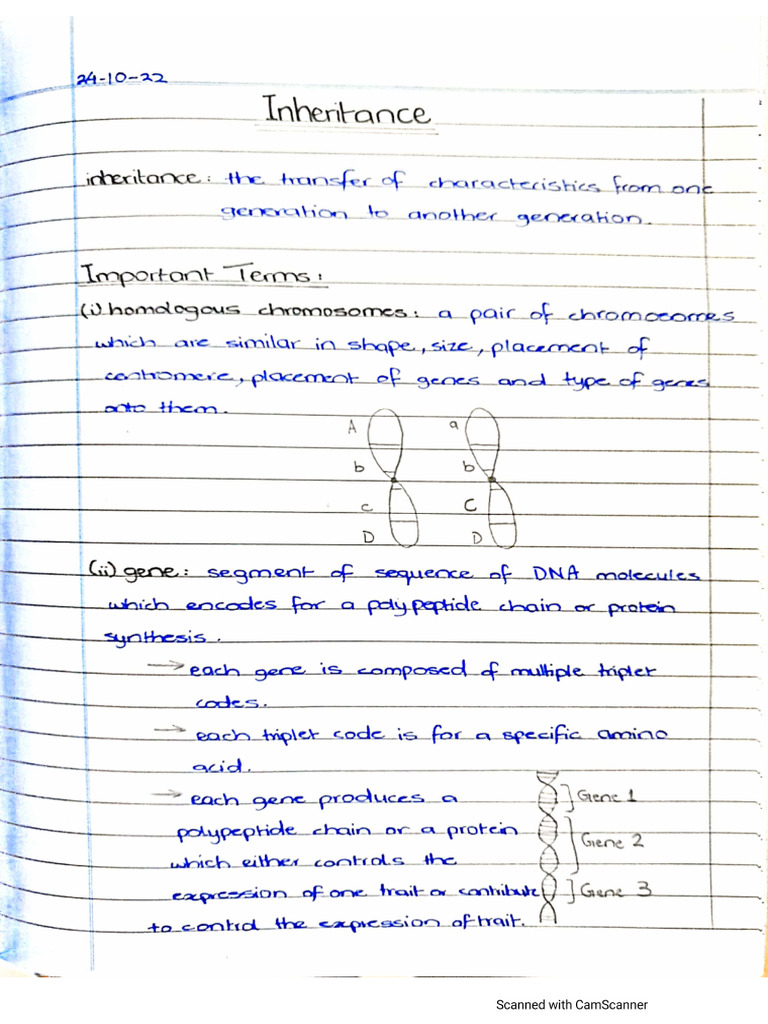 24-10-22
Inheritance
inheritance: the transfer of characteristics from one
generation to another generation.
Important Terms:
(i) homologous chromosomes: a pair of chromosomes
which are similar in shape, size, placement of
centromere, placement of genes and type of genes
onto them.
A a
b b
c C
D D
(ii) gene: segment of sequence of DNA molecules
which encodes for a polypeptide chain or protein
synthesis.
→ each gene is composed of multiple triplet
codes.
→ each triplet code is for a specific amino
acid.
→ each gene produces a
polypeptide chain or a protein
which either controls the
expression of one trait or contribute
to control the expression of trait.
Gene 1
Gene 2
Gene 3
Scanned with CamScanner